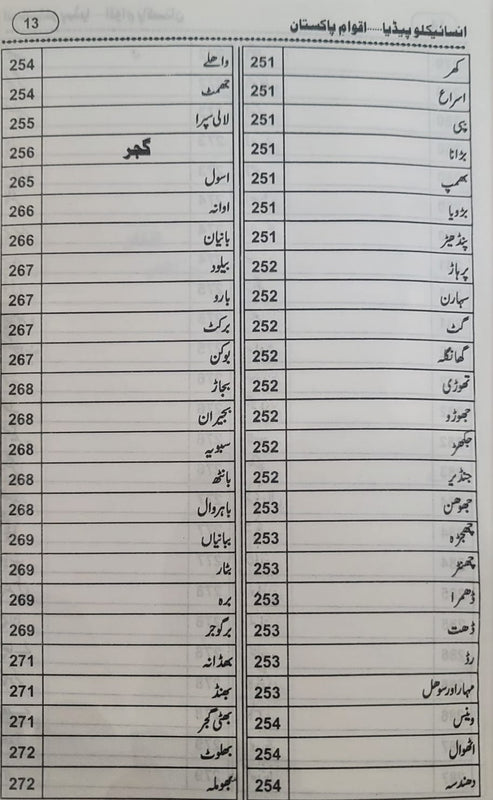 13
انسائیکلو پیڈیا.....اقوام پاکستان
کھر 251
اسراع 251
پی 251
بڑانا 251
بھمپ 251
بڑویا 251
پنڈھیڑ 251
پرہاڑ 252
سہارن 252
گٹ 252
گھانگلہ 252
تھوڑی 252
جھوڑو 252
جکھڑ 252
جنڈیر 252
جھوھن 253
چھجڑہ 253
چھنڑ 253
ڈھمرا 253
ڈھت 253
رڈ 253
مہار اور سوھل 253
وینس 254
اٹھوال 254
دھندسہ 254
واھلے 254
جھمٹ 254
لالی سپرا 255
گجر 256
اسول 265
اوانہ 266
بانیان 266
بیلود 267
بارو 267
برکٹ 267
بوکن 267
بجاڑ 268
بجیران 268
سبویہ 268
بانٹھ 268
باہروال 268
ببانیاں 269
بٹار 269
برہ 269
برگوجر 269
بھڈانہ 271
بھنڈ 271
بھٹی گجر 271
بھلوٹ 272
بھوملہ 272